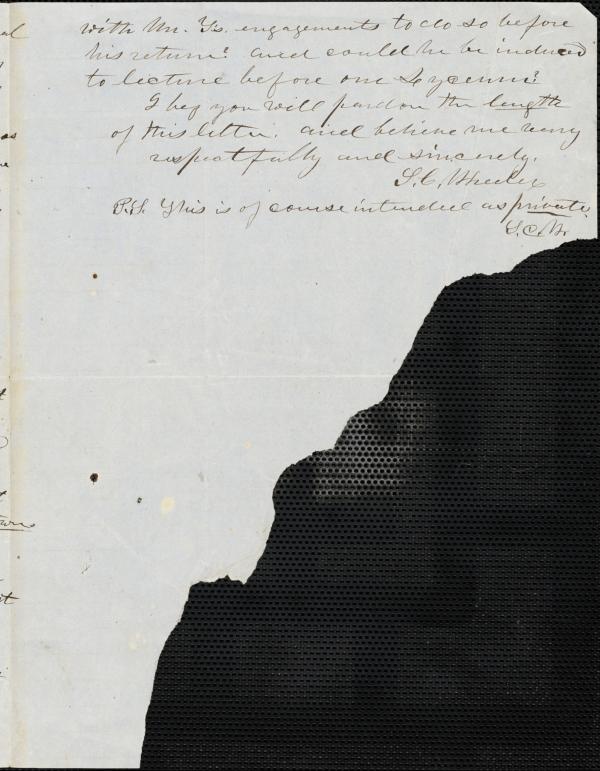 with Mr. Ts. engagements to do so before
his return? and could he be induced
to lecture before our Lyceum?
I beg you will pardon the length
of this letter. and believe me very
respectfully and sincerely.
S. C. Wheeler
P.S. This is of course intended as private.
S. C. W.